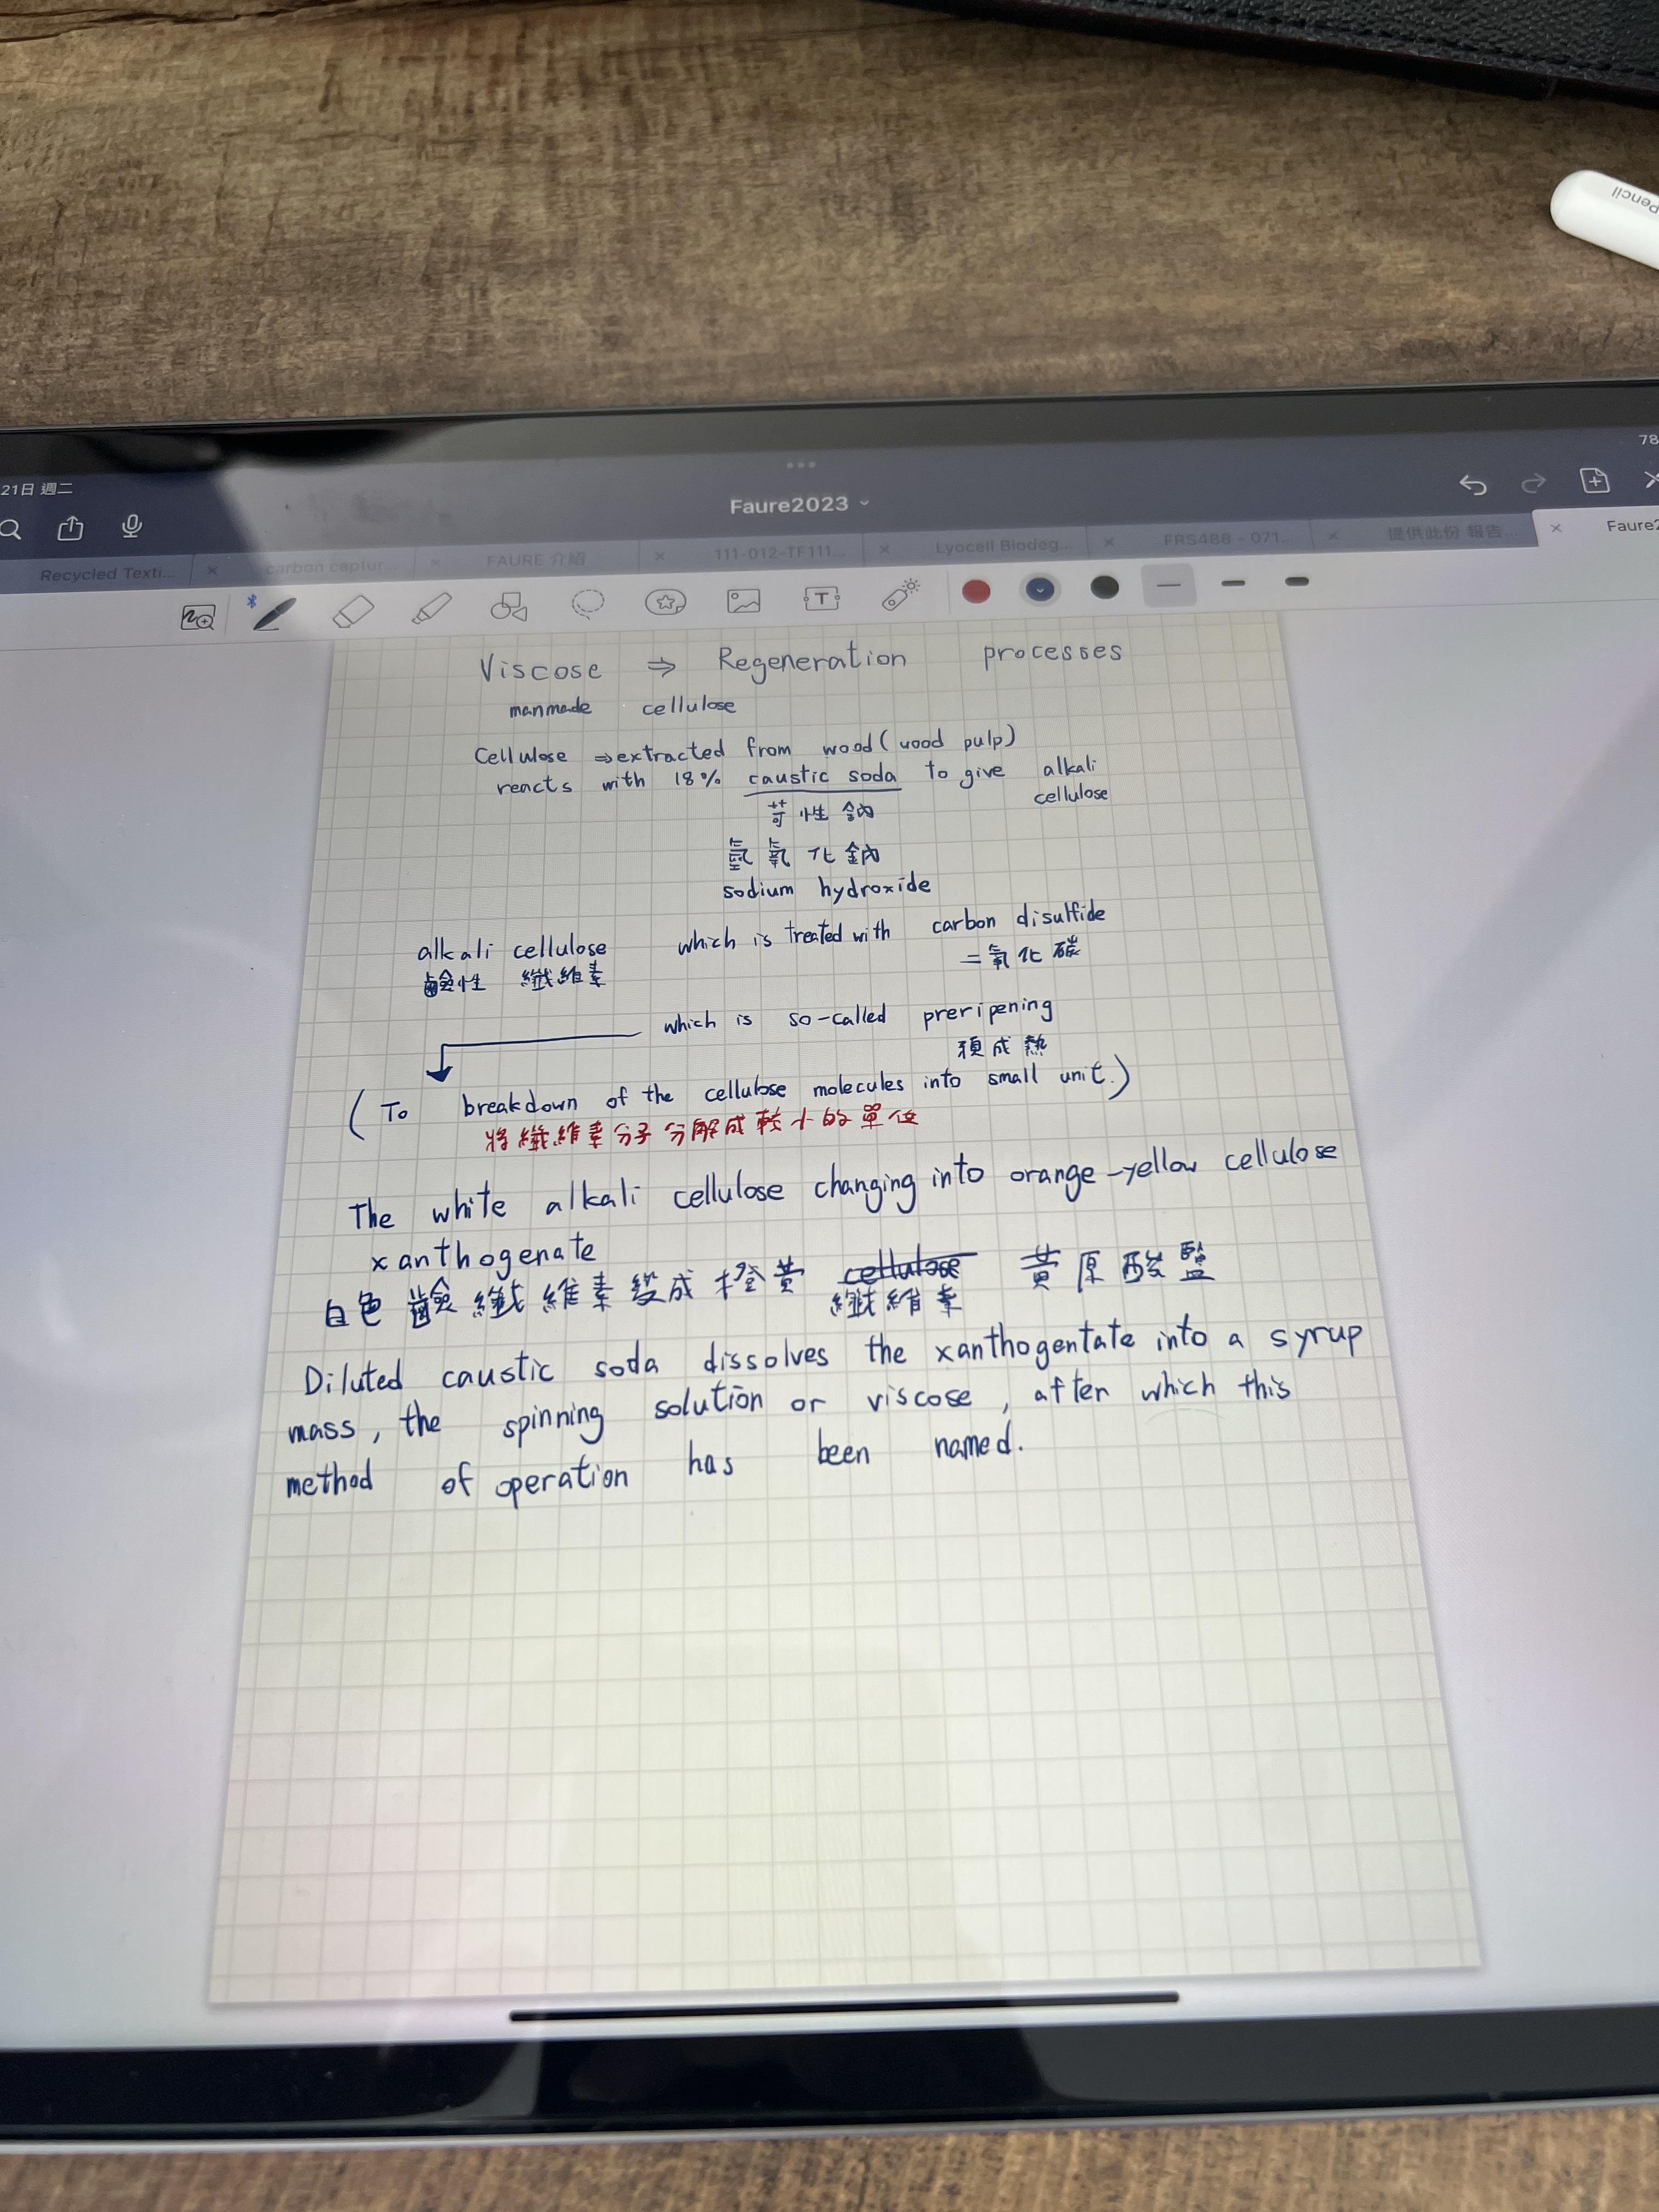 Pencil
78
21日 週二
Faure2023
Recycled Texti...
carbon captur...
FAURE 介紹
111-012-TF111...
Lyocell Biodeg...
FRS488 - 071...
提供此份 報告...
Faure2
T
Viscose ⇒ Regeneration processes
manmade cellulose
Cellulose ⇒ extracted from wood (wood pulp)
reacts with 18% caustic soda to give alkali
cellulose
苛性鈉
氫氧化鈉
sodium hydroxide
alkali cellulose which is treated with carbon disulfide
鹼性 纖維素 二氧化碳
which is so-called preripening
預成熟
(To breakdown of the cellulose molecules into small unit.)
將纖維素分子分解成較小的單位
The white alkali cellulose changing into orange-yellow cellulose
xanthogenate
白色鹼纖維素變成橙黃 cellulose 黃原酸鹽
纖維素
Diluted caustic soda dissolves the xanthogentate into a syrup
mass, the spinning solution or viscose, after which this
method of operation has been named.